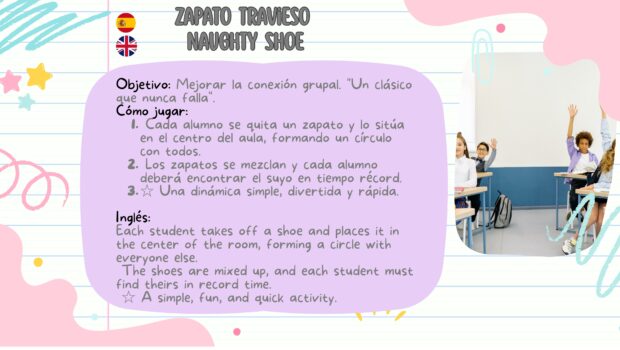 ZAPATO TRAVIESO
NAUGHTY SHOE
Objetivo: Mejorar la conexión grupal. "Un clásico
que nunca falla".
Cómo jugar:
1. Cada alumno se quita un zapato y lo sitúa
en el centro del aula, formando un círculo
con todos.
2. Los zapatos se mezclan y cada alumno
deberá encontrar el suyo en tiempo récord.
3. ☆ Una dinámica simple, divertida y rápida.
Inglés:
Each student takes off a shoe and places it in
the center of the room, forming a circle with
everyone else.
The shoes are mixed up, and each student must
find theirs in record time.
☆ A simple, fun, and quick activity.